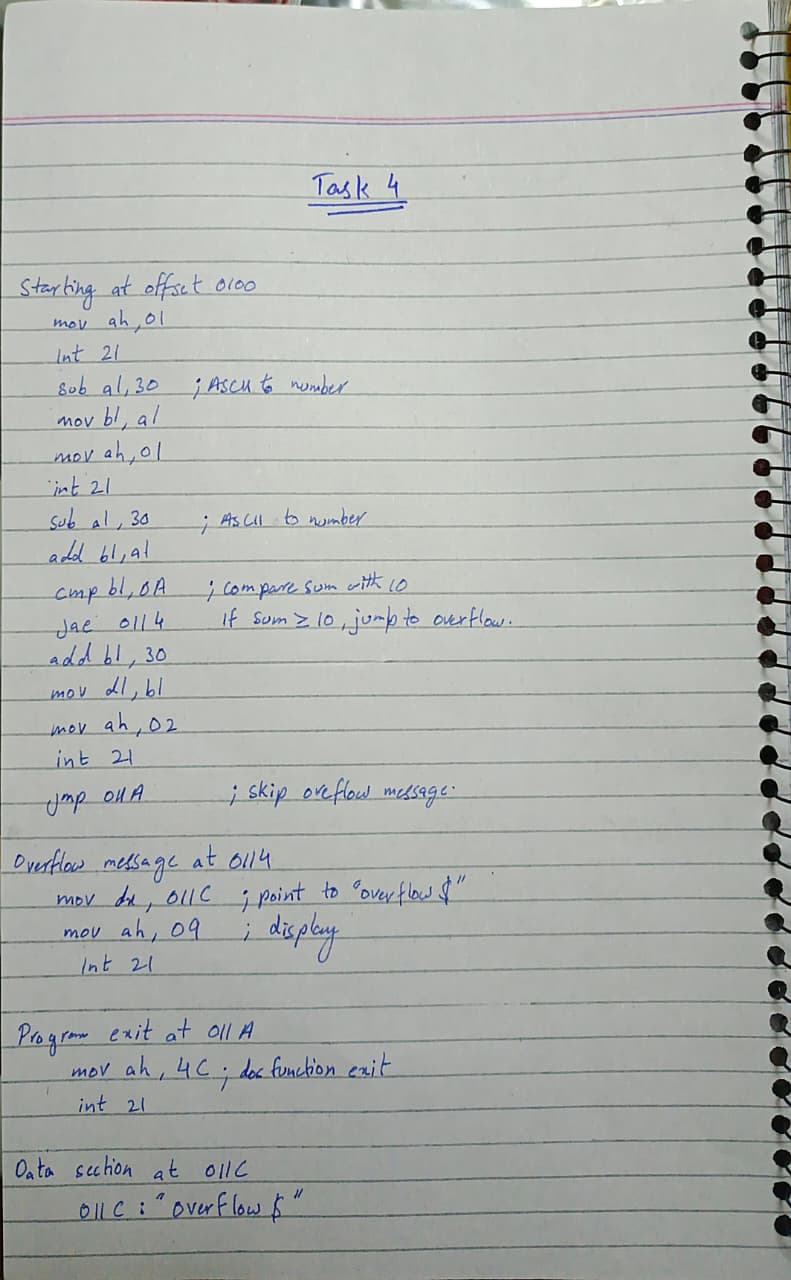 Task 4
Starting at offset 0100
mov ah,01
int 21
sub al,30 ; ASCII to number
mov bl, al
mov ah,01
int 21
sub al, 30 ; ASCII to number
add bl,al
cmp bl,0A ; compare sum with 10
Jae 0114 If sum ≥ 10, jump to overflow.
add bl, 30
mov dl, bl
mov ah,02
int 21
jmp 011A ; skip oveflow message.
Overflow message at 0114
mov dx, 011C ; point to "overflow $"
mov ah, 09 ; display
Int 21
Program exit at 011A
mov ah, 4C ; dos function exit
int 21
Data section at 011C
011C : "overflow $"